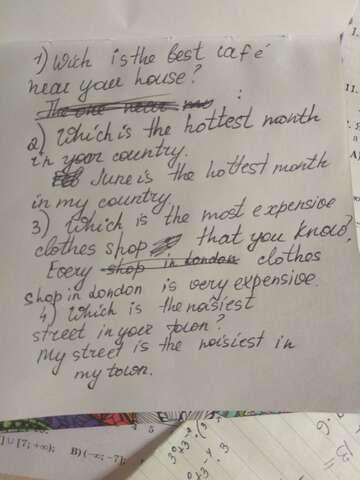 1) Wich is the best café
near your house?
The one near my :
2) Which is the hottest month
in your country.
June is the hottest month
in my country
3) Which is the most expensive
clothes shop that you know?
Every shop in london clothes
shop in London is very expensive.
4) Which is the nasiest
street in your town?
My street is the noisiest in
my town.
1.
11.
A)
] ∪ [7; +∞);
B) (-∞; -7];